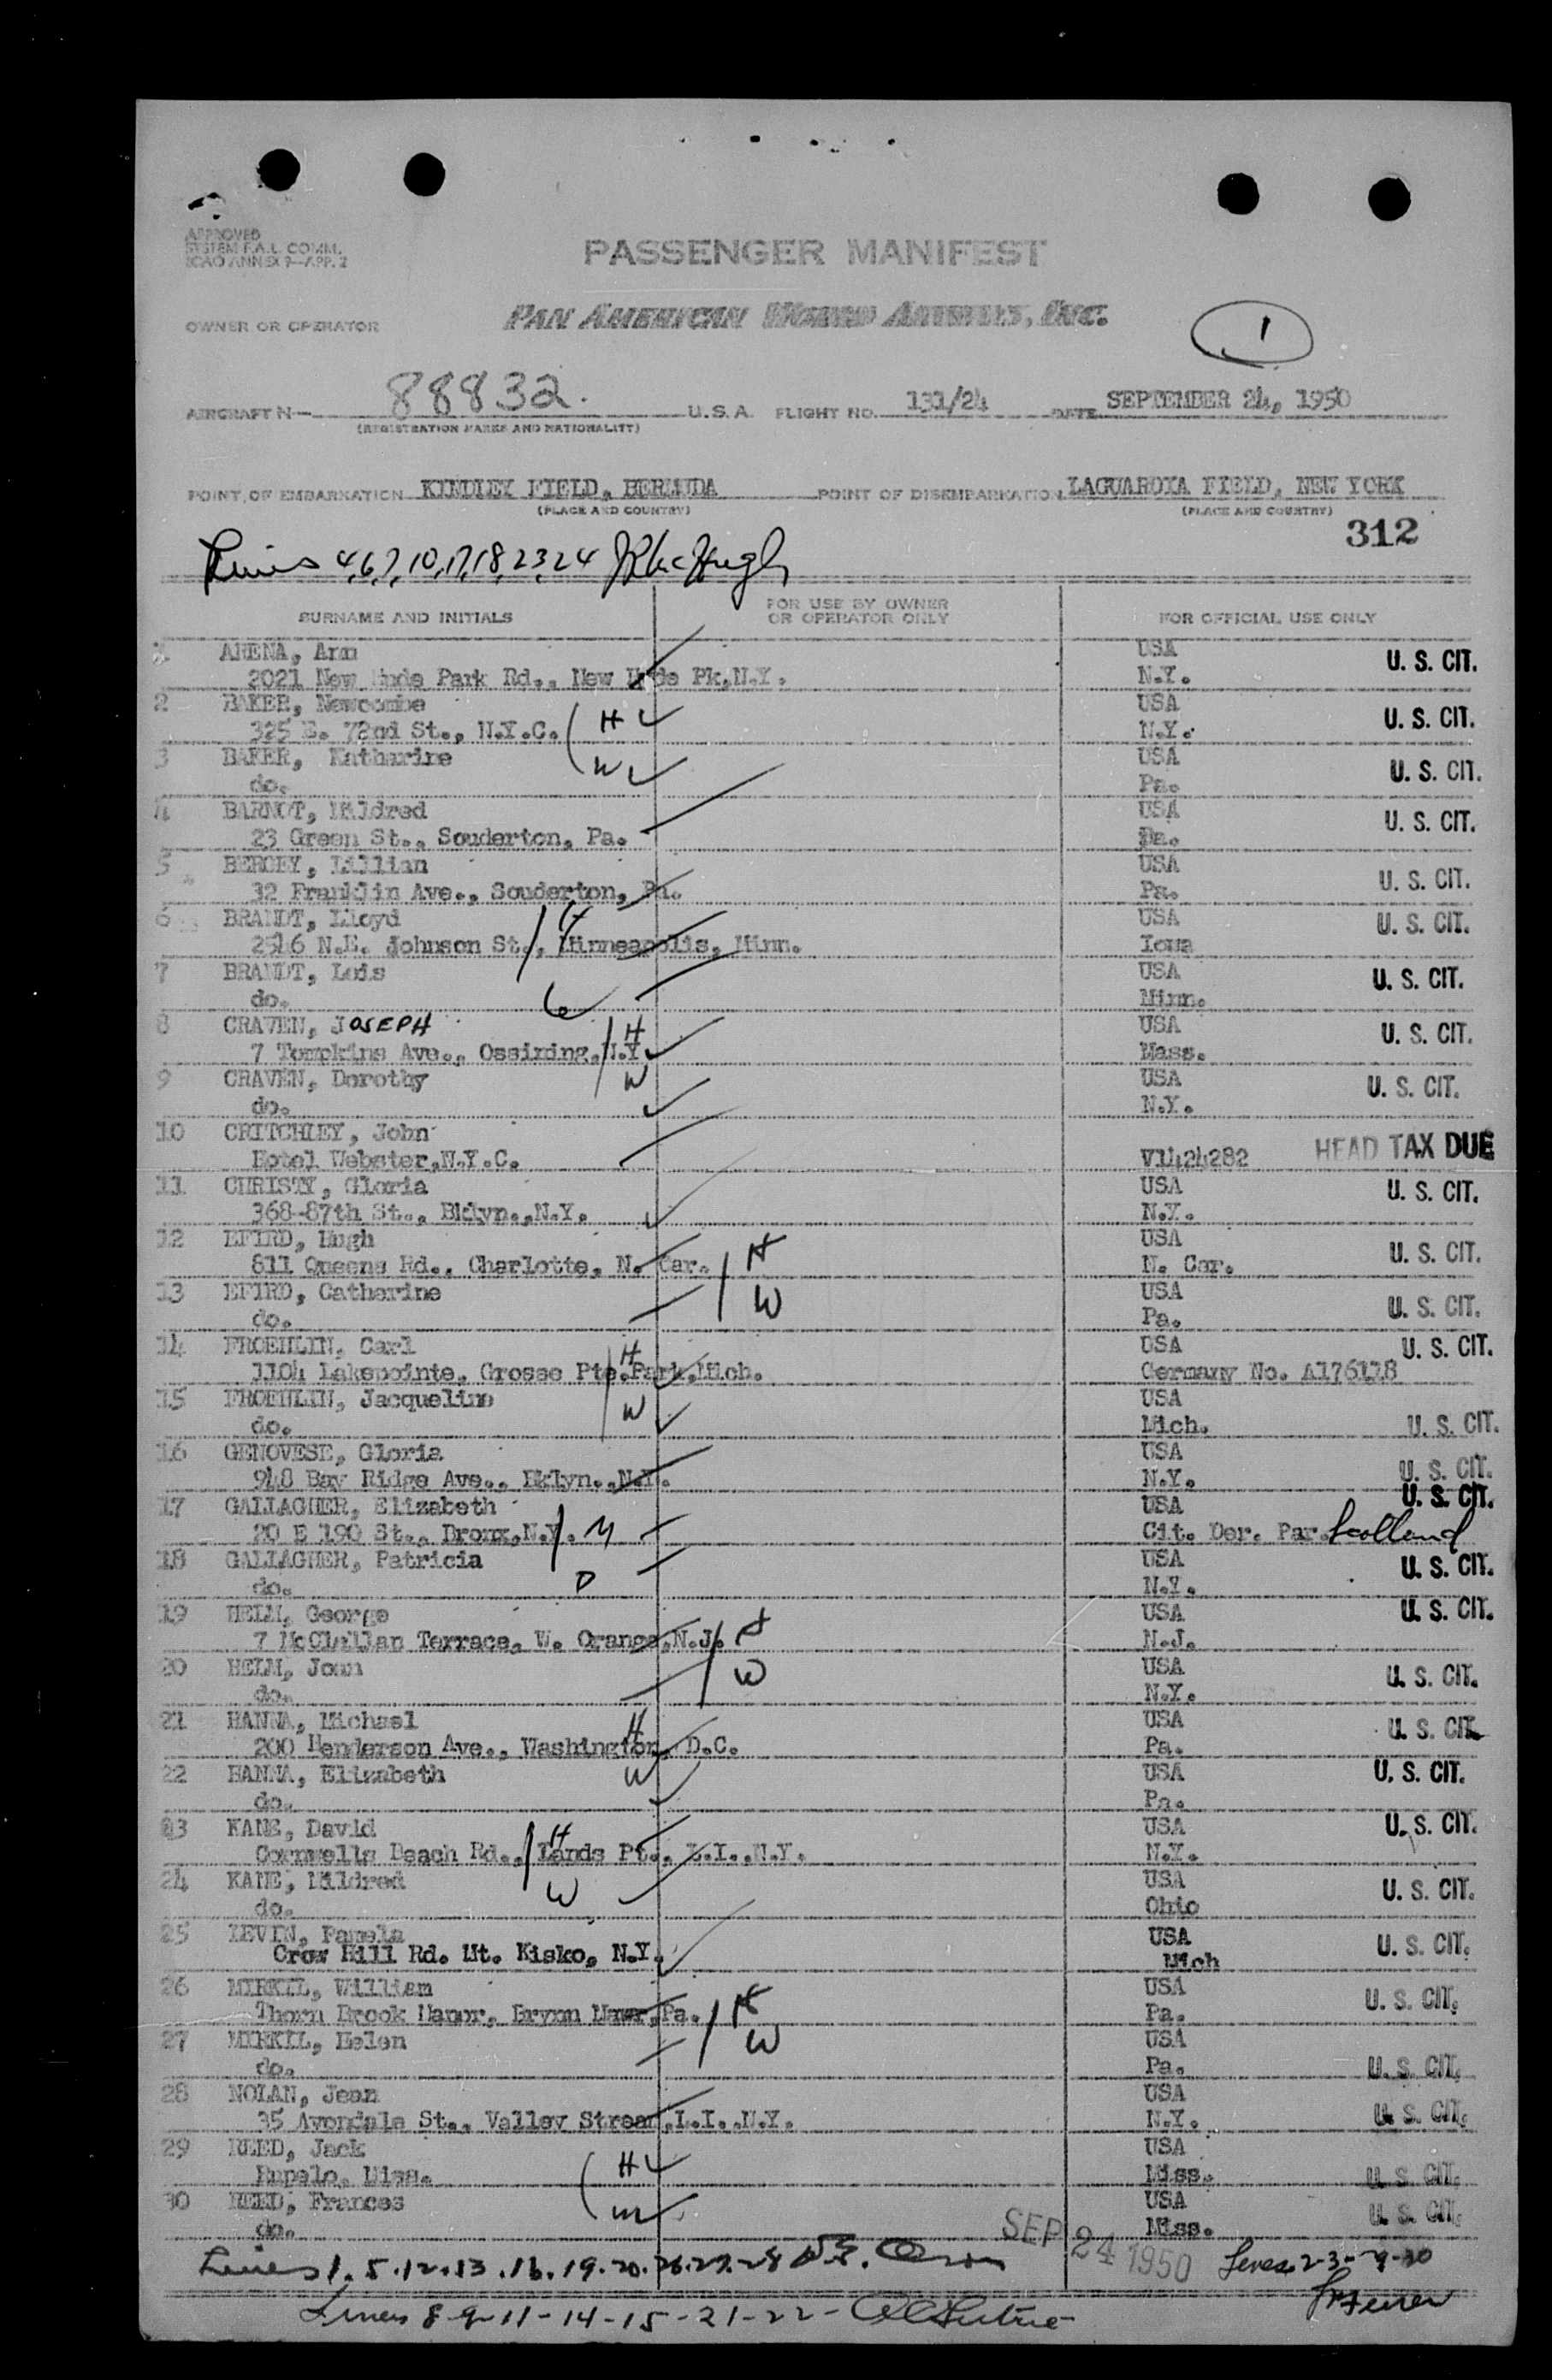 APPROVED
SYSTEM F.A.L. COMM.
ICAO ANNEX 9—APP. 2
PASSENGER MANIFEST
OWNER OR OPERATOR PAN AMERICAN WORLD AIRWAYS, INC.
1
AIRCRAFT N— 88832. U.S.A. FLIGHT NO. 131/24 DATE SEPTEMBER 24, 1950
(REGISTRATION MARKS AND NATIONALITY)
POINT OF EMBARKATION KINDLEY FIELD, BERMUDA POINT OF DISEMBARKATION LAGUARDIA FIELD, NEW YORK
(PLACE AND COUNTRY) (PLACE AND COUNTRY)
312
Lines 4,6,7,10,17,18,23,24
SURNAME AND INITIALS FOR USE BY OWNER OR OPERATOR ONLY FOR OFFICIAL USE ONLY
1 ARENA, Ann USA U. S. CIT.
2021 New Hyde Park Rd., New Hyde Pk,N.Y. N.Y.
2 BAKER, Newcombe USA U. S. CIT.
325 E. 72nd St., N.Y.C. H N.Y.
3 BAKER, Katharine W USA U. S. CIT.
do. Pa.
4 BARNDT, Mildred USA U. S. CIT.
23 Green St., Souderton, Pa. Pa.
5 BERGEY, Lillian USA U. S. CIT.
32 Franklin Ave., Souderton, Pa. Pa.
6 BRANDT, Lloyd USA U. S. CIT.
2516 N.E. Johnson St., Minneapolis, Minn. Iowa
7 BRANDT, Lois USA U. S. CIT.
do. W Minn.
8 CRAVEN, JOSEPH H USA U. S. CIT.
7 Tompkins Ave., Ossining,N.Y. Mass.
9 CRAVEN, Dorothy W USA U. S. CIT.
do. N.Y.
10 CRITCHLEY, John
Hotel Webster,N.Y.C. V1424282 HEAD TAX DUE
11 CHRISTY, Gloria USA U. S. CIT.
368-87th St., Bklyn.,N.Y. N.Y.
12 EFIRD, Hugh USA U. S. CIT.
811 Queens Rd., Charlotte, N. Car. H N. Car.
13 EFIRD, Catherine W USA U. S. CIT.
do. Pa.
14 FROEHLIN, Carl H USA U. S. CIT.
1104 Lakepointe, Grosse Pte.Park,Mich. Germany No. A176118
15 FROEHLIN, Jacqueline W USA
do. Mich. U. S. CIT.
16 GENOVESE, Gloria USA U. S. CIT.
948 Bay Ridge Ave., Bklyn.,N.Y. N.Y.
17 GALLAGHER, Elizabeth USA U. S. CIT.
20 E 190 St., Bronx,N.Y. M Cit. Der. Par. Scotland
18 GALLAGHER, Patricia USA U. S. CIT.
do. D N.Y.
19 HEIM, George USA U. S. CIT.
7 McClellan Terrace, W. Orange,N.J. H N.J.
20 HEIM, Joan W USA U. S. CIT.
do. N.Y.
21 HANNA, Michael H USA U. S. CIT.
200 Henderson Ave., Washington, D.C. Pa.
22 HANNA, Elizabeth W USA U. S. CIT.
do. Pa.
23 KANE, David H USA U. S. CIT.
Cornwells Beach Rd., Sands Pt., L.I.,N.Y. N.Y.
24 KANE, Mildred W USA U. S. CIT.
do. Ohio
25 LEVIN, Pamela USA U. S. CIT.
Crow Hill Rd. Mt. Kisko, N.Y. Mich
26 MIRKIL, William USA U. S. CIT.
Thorn Brook Manor, Brynn Mawr,Pa. H Pa.
27 MIRKIL, Helen W USA
do. Pa. U. S. CIT.
28 NOLAN, Jean USA
35 Avondale St., Valley Stream,L.I.,N.Y. N.Y. U. S. CIT.
29 REED, Jack H USA
Tupelo, Miss. Miss. U. S. CIT.
30 REED, Frances W USA U. S. CIT.
do. Miss.
SEP 24 1950
Lines 1.5.12.13.16.19.20.26.27.28
Lines 2-3-29-30
Lines 8-9-11-14-15-21-22-